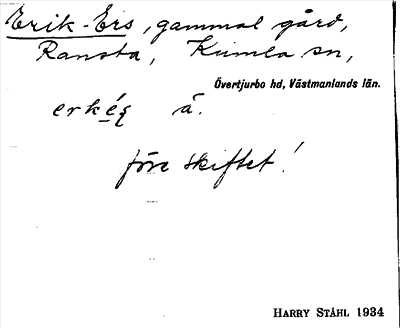 Erik-Ers, gammal gård,
Ransta, Kumla sn,
Övertjurbo hd, Västmanlands län.
å.
före skiftet!
HARRY STÅHL 1934